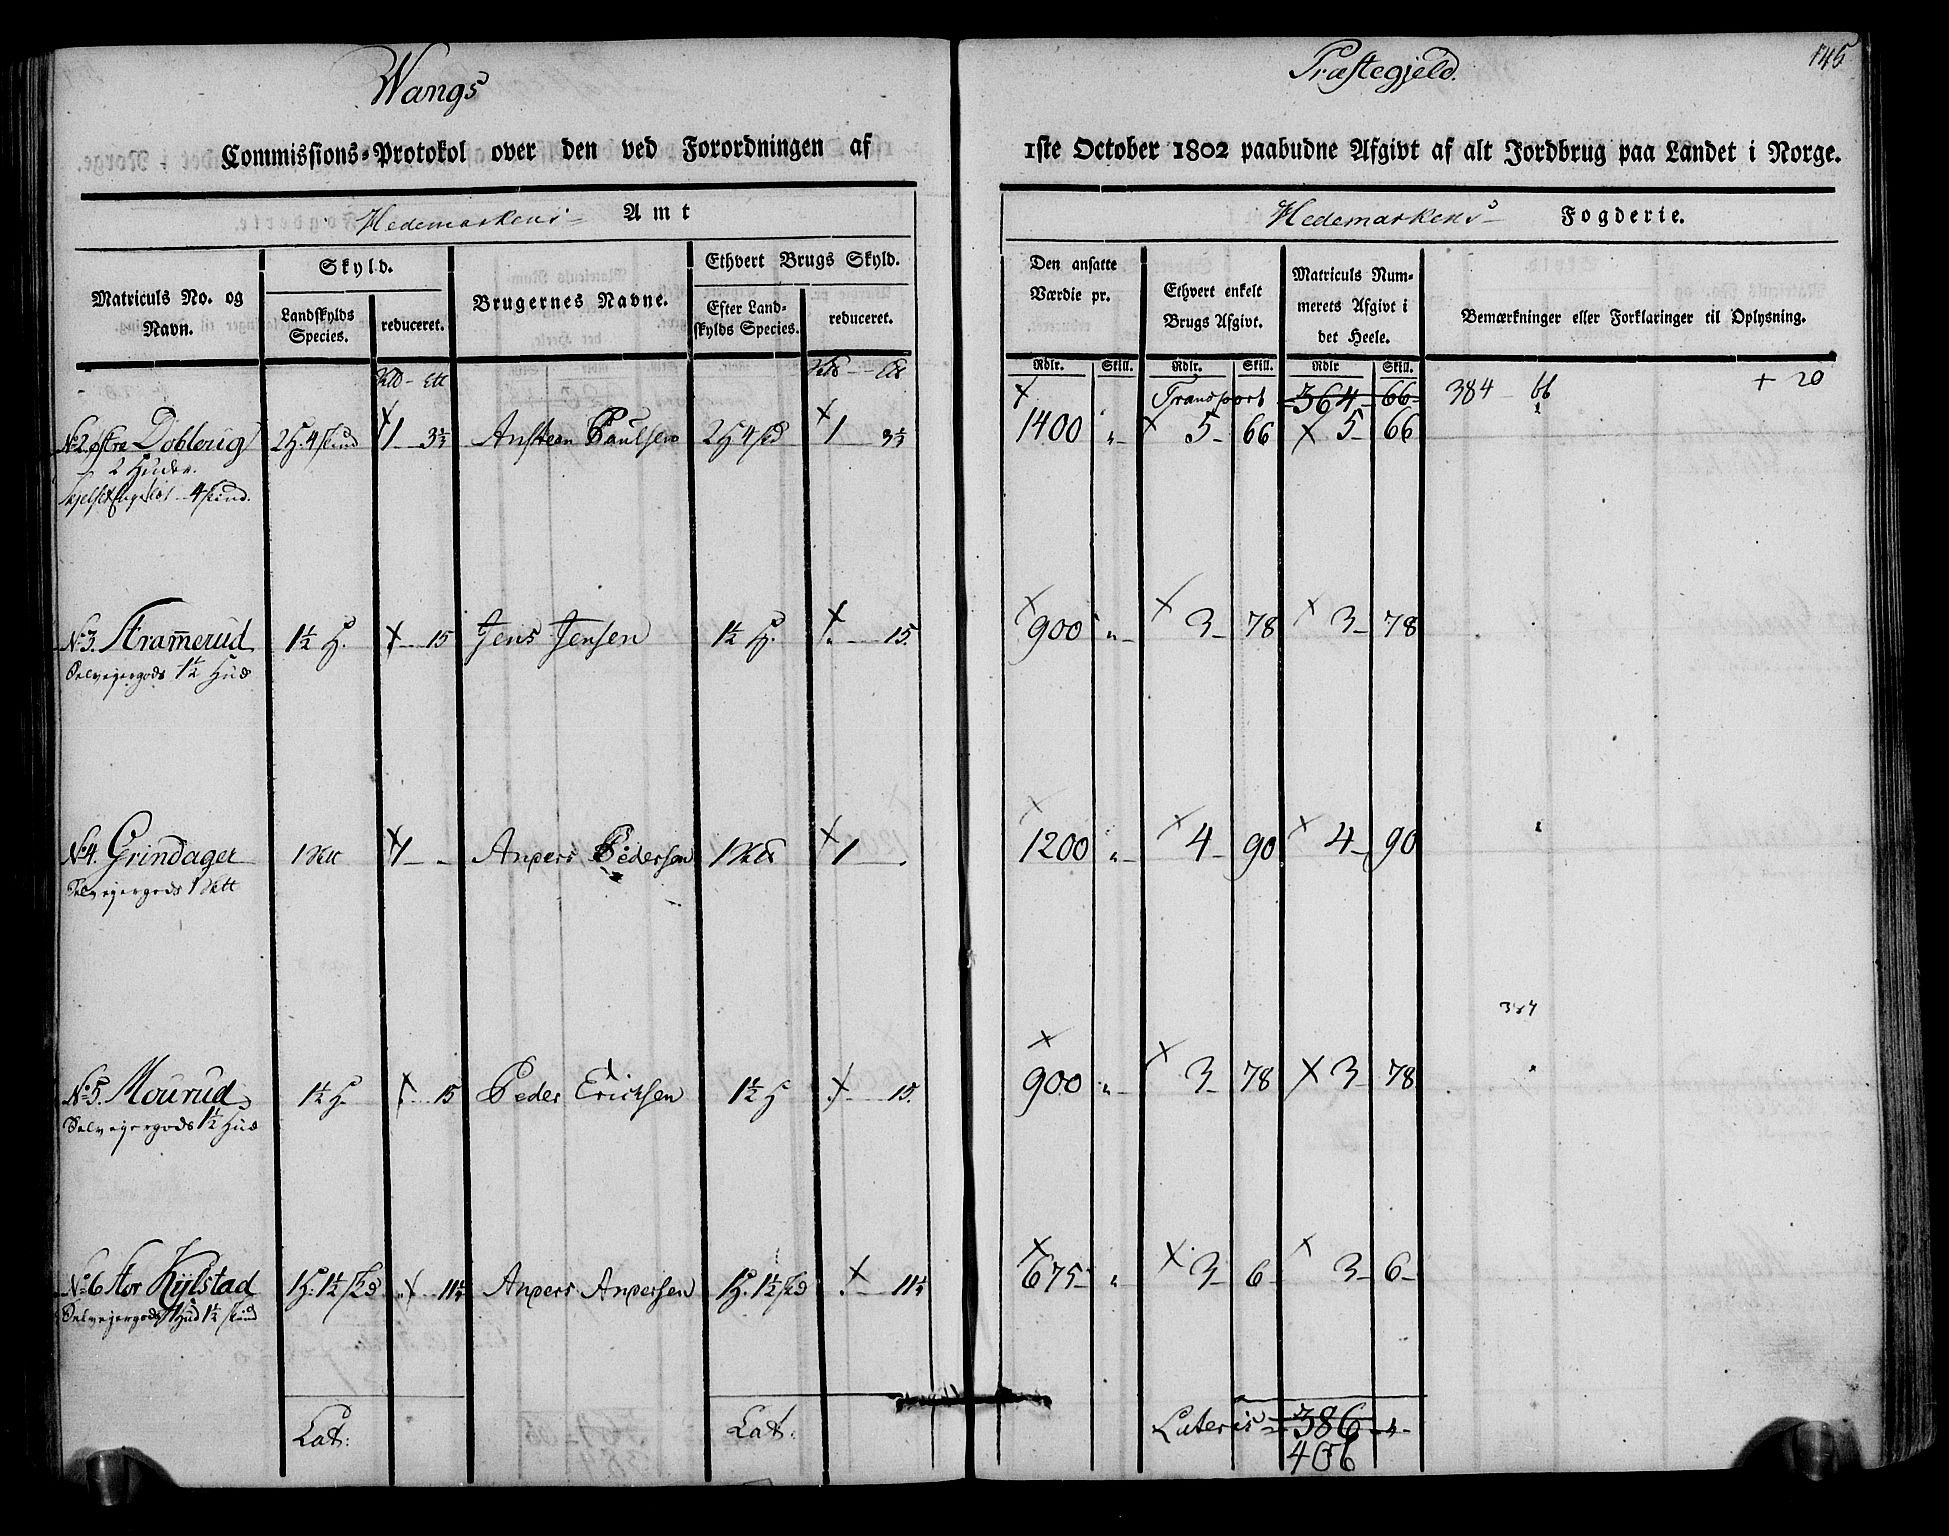 Wangs Præstegjeld. 145
Commissions-Protokol over den ved Forordningen af 1ste October 1802 paabudne Afgivt af alt Jordbrug paa Landet i Norge.
Hedemarkens Amt Hedemarkens Fogderie.
Matriculs No. og Navn.
Skyld.
Landskylds Species.
reduceret.
Brugernes Navne.
Ethvert Brugs Skyld.
Efter Landskylds Species.
reduceret.
Den ansatte Værdie pr.
Ethvert enkelt Brugs Afgivt.
Matriculs Nummerets Afgivt i det Heele.
Bemærkninger eller Forklaringer til Oplysning.
Rdlr. Skill. Rdlr. Skill. Rdlr Skill.
Transport 364 66 384 66 + 20
No 2 østre Doblerug 2 H. 4 skind 1 3½ Ansteen Paulsen 2 H 4 skd 1 3½ 1400 „ 5 66 5 66
2 Huder
4 skind.
No 3. Stramerud 1½ H. 15 Jens Jensen 1½ H. 15. 900 „ 3 78 3 78
Selveiergods 1½ Hud
No 4. Grindager 1 Sktt 1 Anders Pedersen 1 1 1200 „ 4 90 4 90
Selveiergods 1 Sktt
384
No 5. Mourud 1½ H. 15 Peder Ericksen 1½ H 15. 900 „ 3 78 3 78
Selveiergods 1½ Hud
No 6 Stor Kylstad 1 H. 1½ skd 11¼ Anders Andersen 1 H. 1½ skd 11¼ 675 „ 3 6 3 6
Selveiergods 1 Hud 1½ skind
Lat: Lat: Lateris 386 „
406